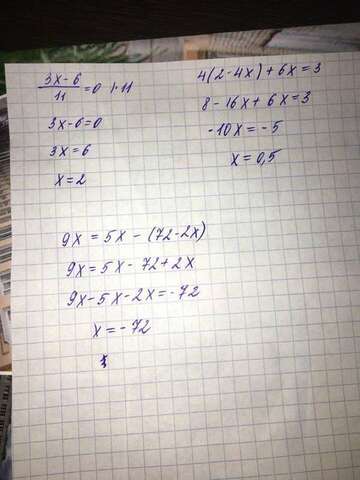 (3x-6)/11 = 0 | · 11
3x-6=0
3x=6
x=2
4(2-4x)+6x=3
8-16x+6x=3
-10x=-5
x=0,5
9x = 5x - (72-2x)
9x=5x-72+2x
9x-5x-2x=-72
x=-72